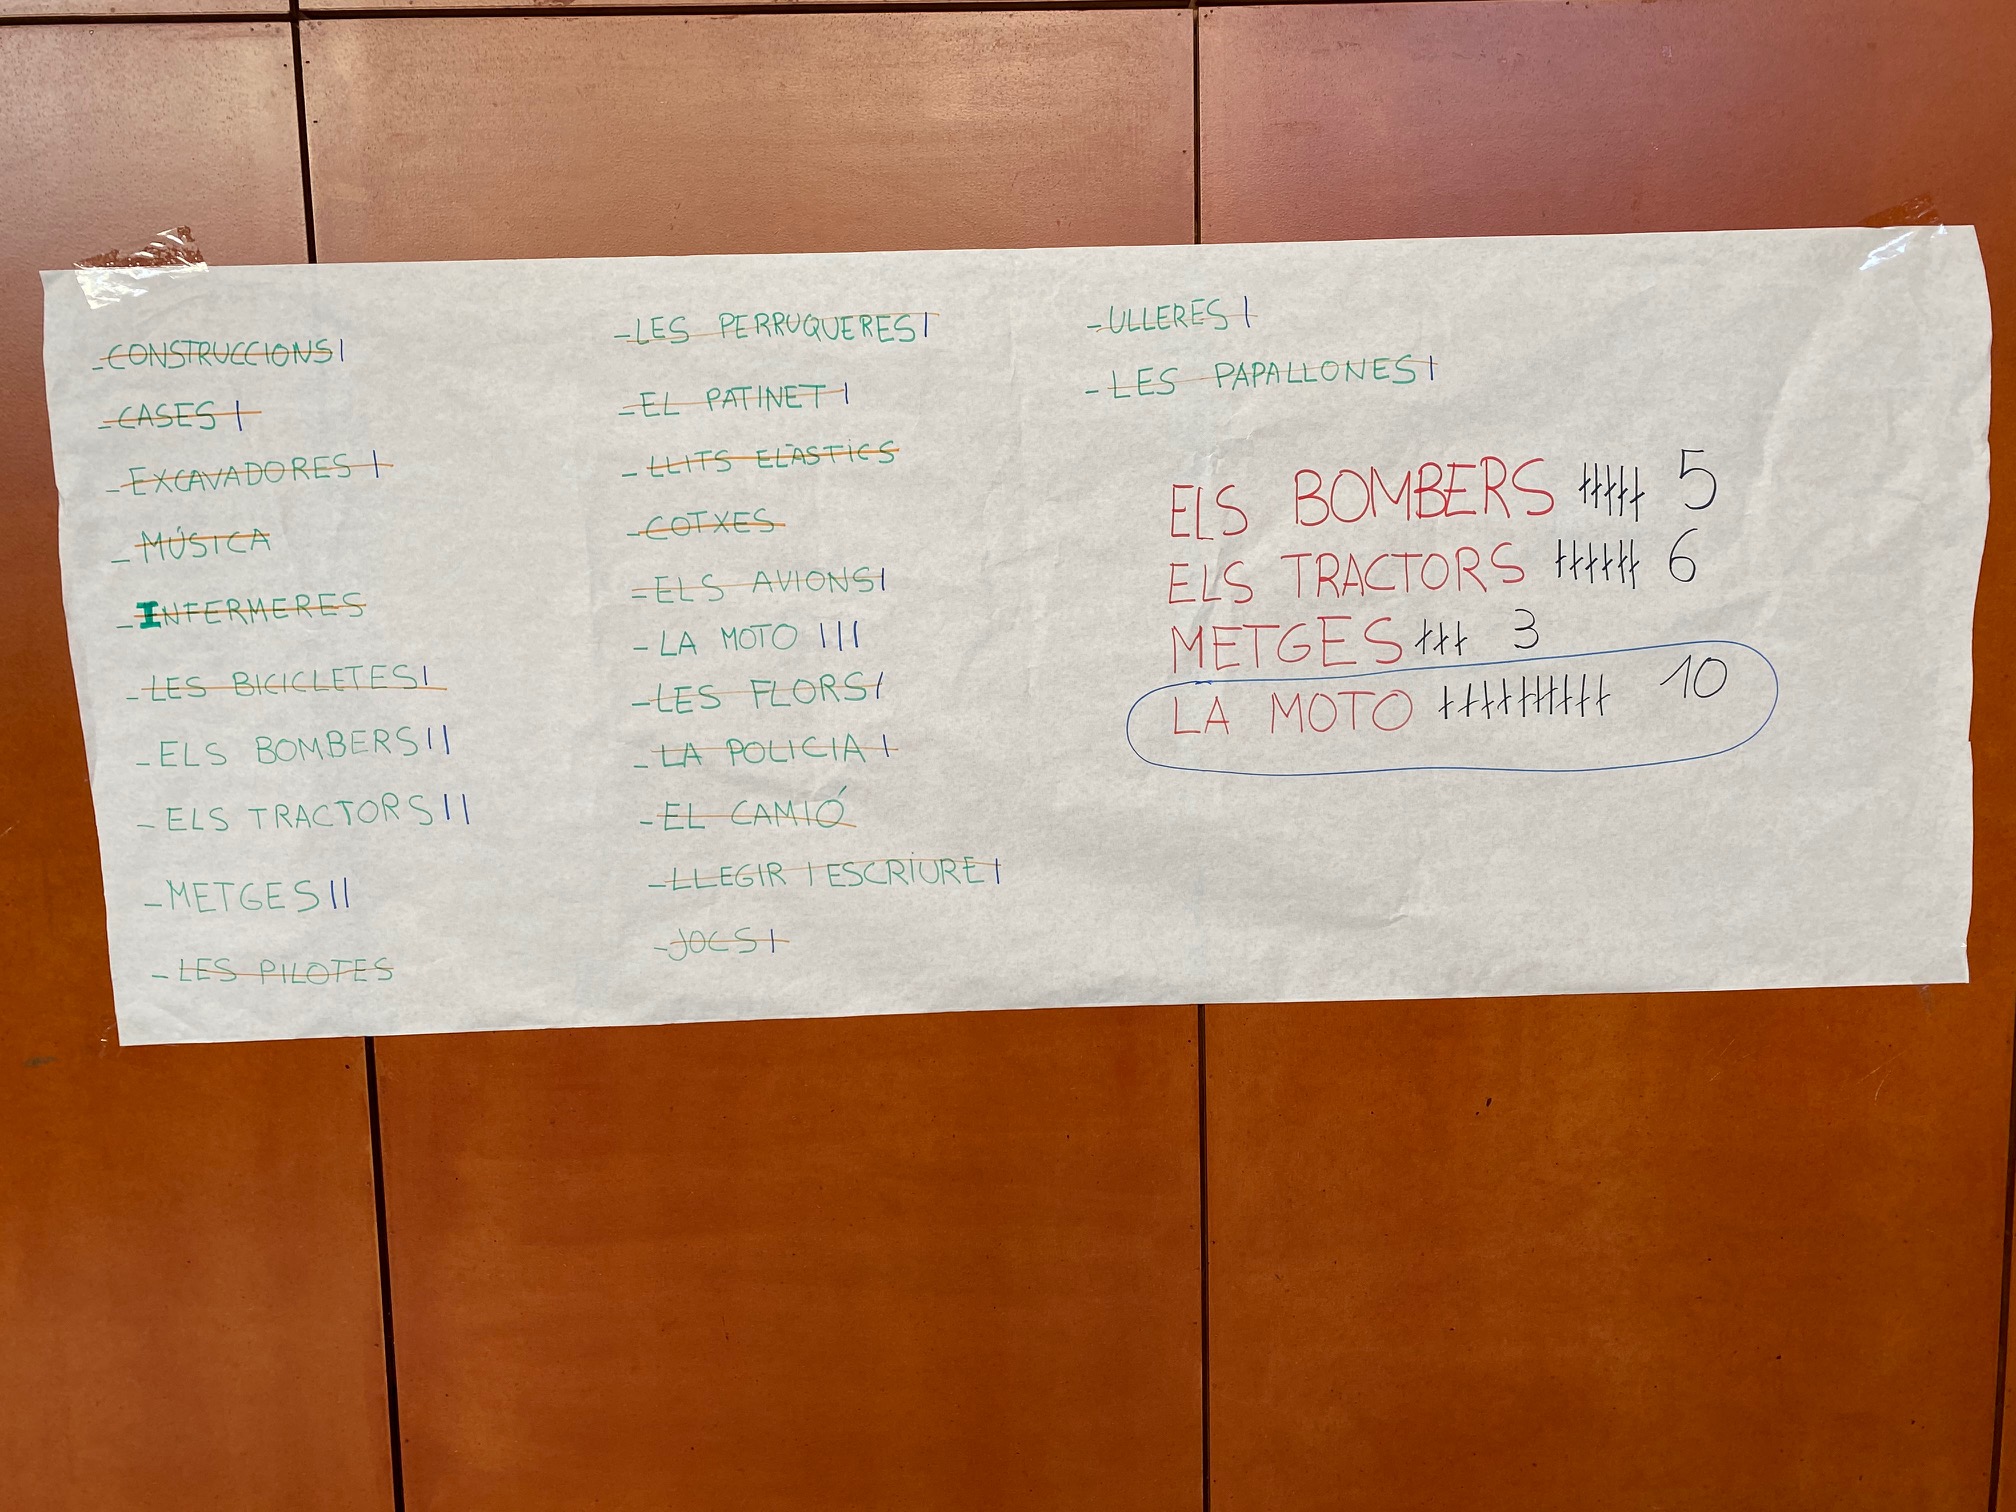 -CONSTRUCCIONS|
-CASES |
-EXCAVADORES |
-MÚSICA
-INFERMERES
-LES BICICLETES|
-ELS BOMBERS||
-ELS TRACTORS||
-METGES||
-LES PILOTES
-LES PERRUQUERES|
-EL PATINET |
-LLITS ELÀSTICS
-COTXES
-ELS AVIONS|
-LA MOTO |||
-LES FLORS|
-LA POLICIA |
-EL CAMIÓ
-LLEGIR I ESCRIURE|
-JOCS|
-ULLERES |
-LES PAPALLONES|
ELS BOMBERS ||||| 5
ELS TRACTORS |||||| 6
METGES ||| 3
LA MOTO |||||||||| 10